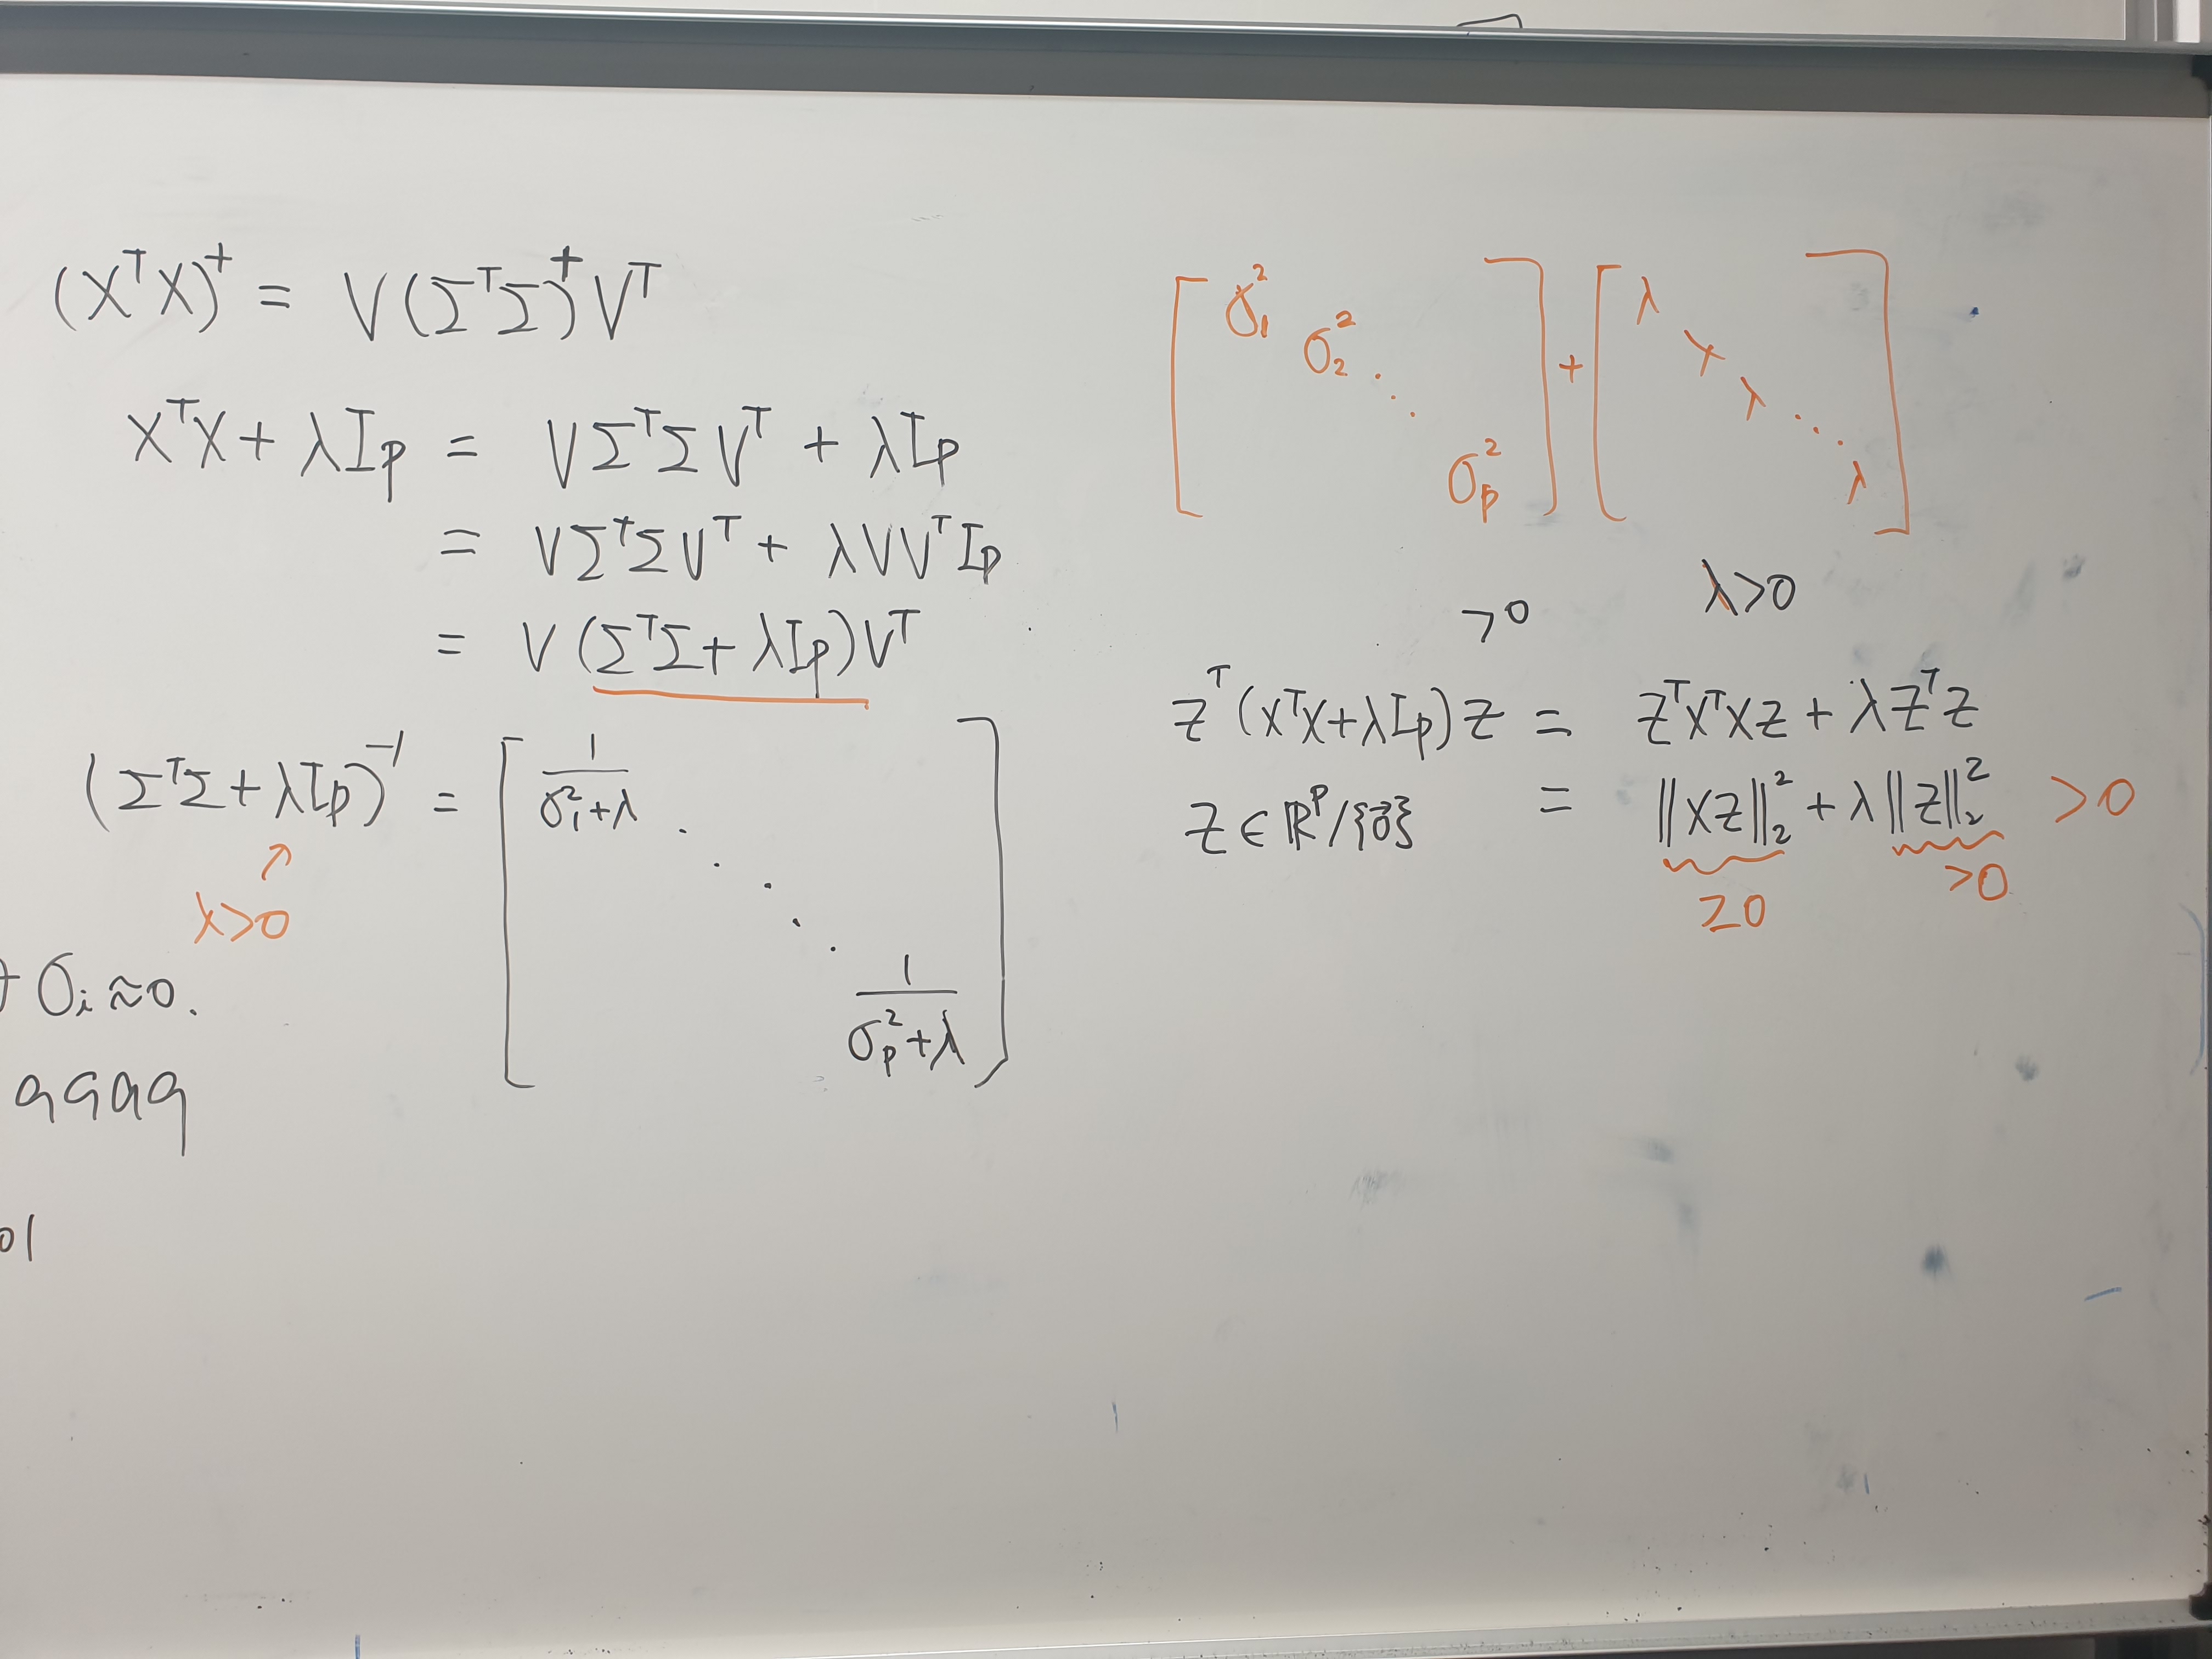 (XᵀX)⁺ = V(ΣᵀΣ)⁺Vᵀ
XᵀX + λIp = VΣᵀΣVᵀ + λIp
= VΣᵀΣVᵀ + λVVᵀIp
= V(ΣᵀΣ + λIp)Vᵀ
(ΣᵀΣ + λIp)⁻¹ = [ 1/(σ₁²+λ) ⋱ 1/(σp²+λ) ]
λ>0
σᵢ ≈ 0.
9999
01
[ σ₁² σ₂² ⋱ σp² ] + [ λ λ λ ⋱ λ ]
>0 λ>0
zᵀ(XᵀX+λIp)z = zᵀXᵀXz + λzᵀz
z ∈ ℝᵖ/{0⃗} = ‖Xz‖₂² + λ‖z‖₂² >0
≥0 >0